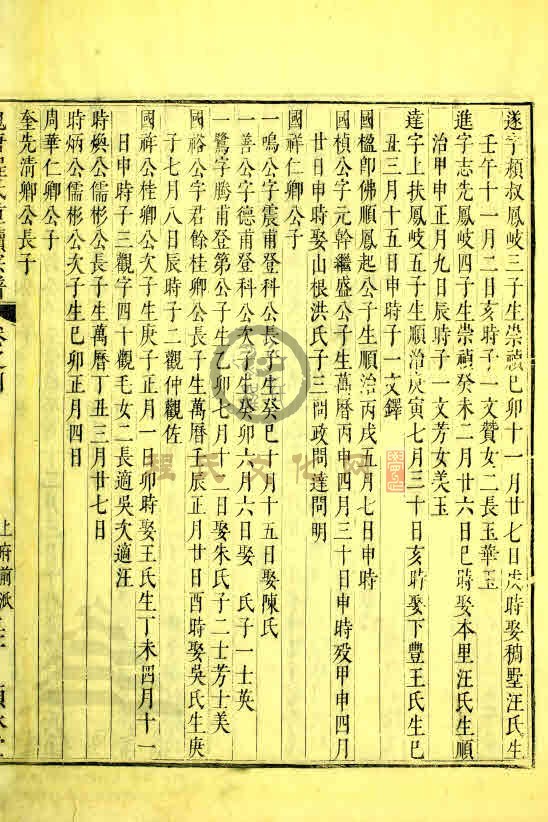 遂字楨叔鳳岐三子生崇禎己卯十一月廿七日戌時娶稠墅汪氏生
壬午十一月二日亥時子一文贊女二長玉華玉
進字志先鳳岐四子生崇禎癸未二月廿六日巳時娶本里汪氏生順
治甲申正月九日辰時子一文芳女美玉
達字上扶鳳岐五子生順治庚寅七月三十日亥時娶下豐王氏生己
丑三月十五日申時子一文鐸
國楹卽佛順鳳起公子生順治丙戌五月七日申時
國楨公字元幹繼盛公子生萬曆丙申四月三十日申時歿甲申四月
廿日申時娶山根洪氏子三問政問達問明
國祥仁卿公子
一鳴公字震甫登科公長子生癸巳十月十五日娶陳氏
一善公字德甫登科公次子生癸卯六月六日娶 氏子一士英
一鷺字騰甫登第公子生乙卯七月十二日娶朱氏子二士芳士美
國裕公字君餘桂卿公長子生萬曆壬辰正月廿日酉時娶吳氏生庚
子七月八日辰時子二觀仲觀佐
國祥公桂卿公次子生庚子正月一日卯時娶王氏生丁未四月十一
日申時子三觀字四十觀毛女二長適吳次適汪
時煥公儒彬公長子生萬曆丁丑三月廿七日
時炳公儒彬公次子生己卯正月四日
周華仁卿公子
奎先淸卿公長子
上府前派
程氏文化网